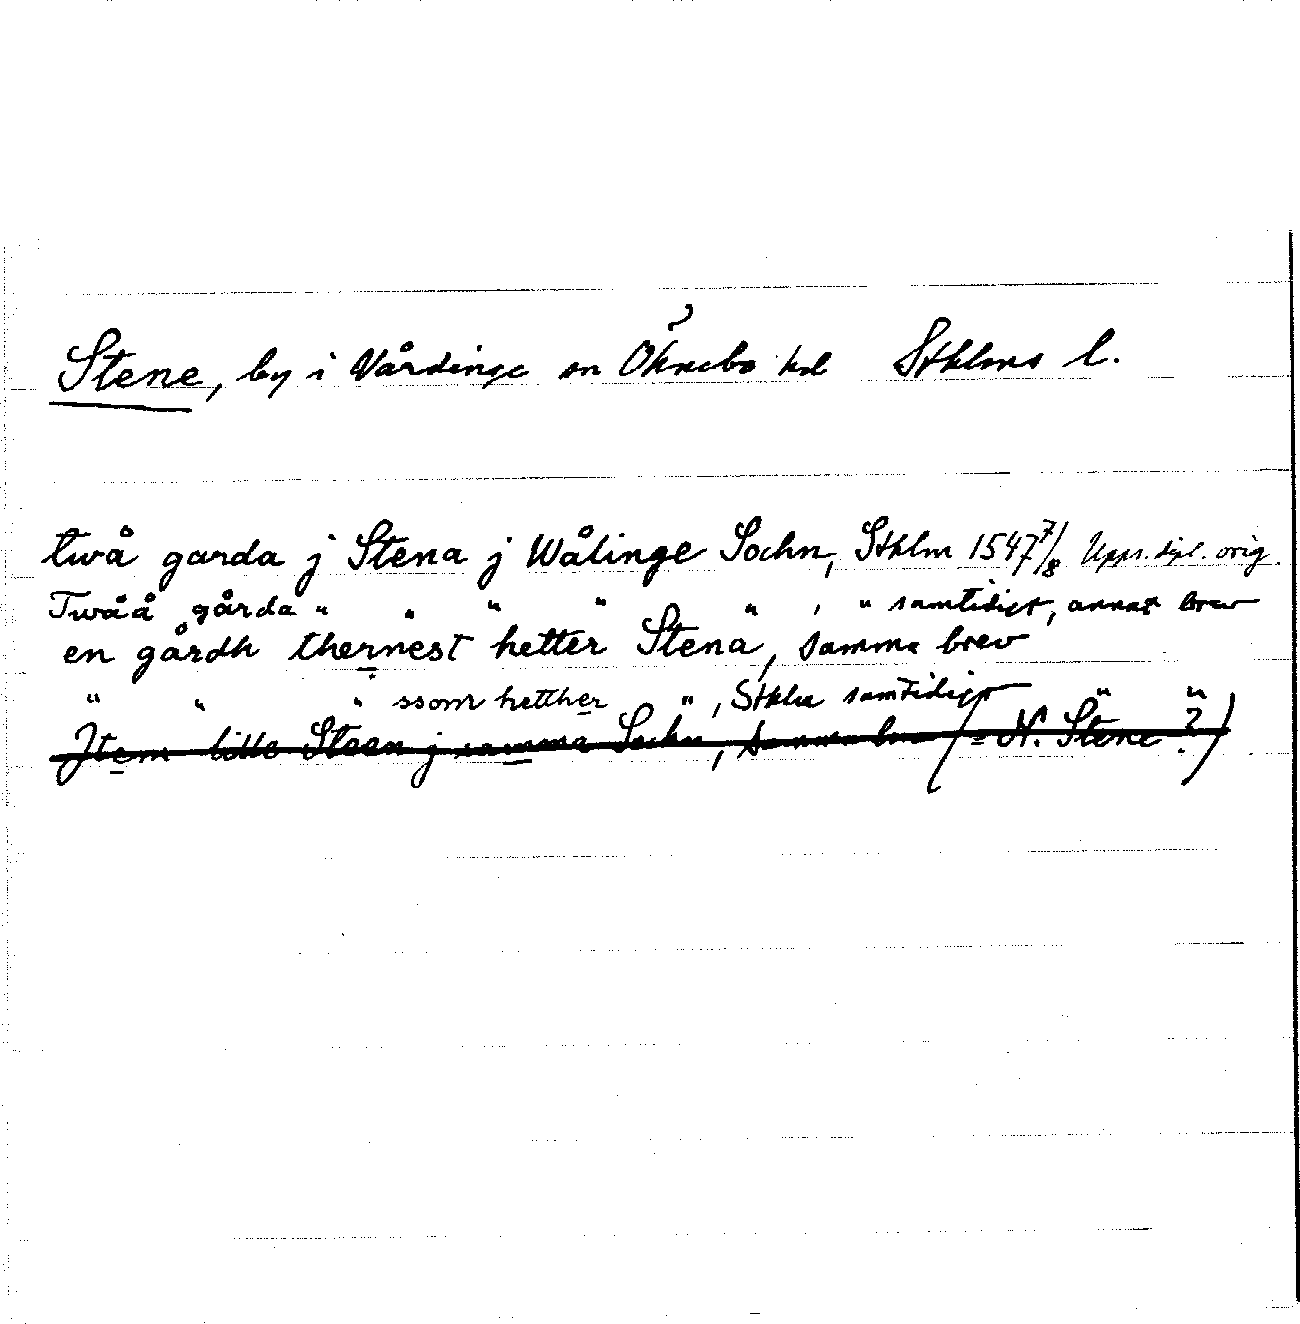 Stene, by i Vårdinge sn Öknebo hd Stklms l.
två garda j Stena j Wålinge Sochn, Stklm 1547 7/8 Upps. dipl. orig.
Twåå gårda " " " " " , " samtidigt, annat brev
en gårdh thernest hetter Stena, samma brev
" " " ssom hetther ", Stklm samtidigt " "
Item litle Steen j samma Sochn, samma brev (= N. Stene?)